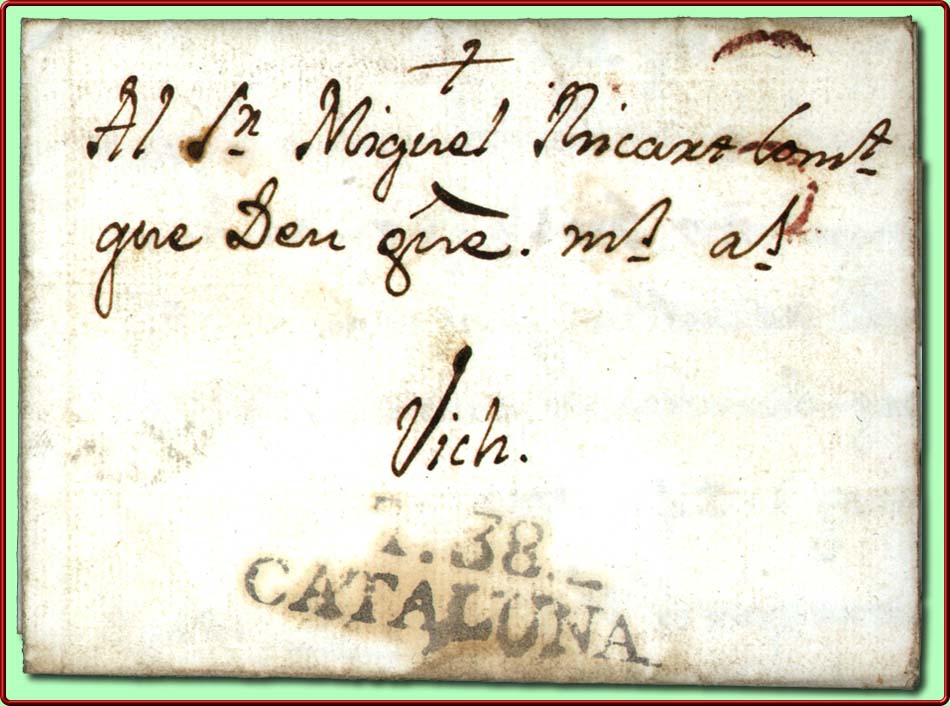 Al Sn Miguel Ricart Comt
que Deu gūe. ms as
Vich.
T. 38.
CATALUÑA